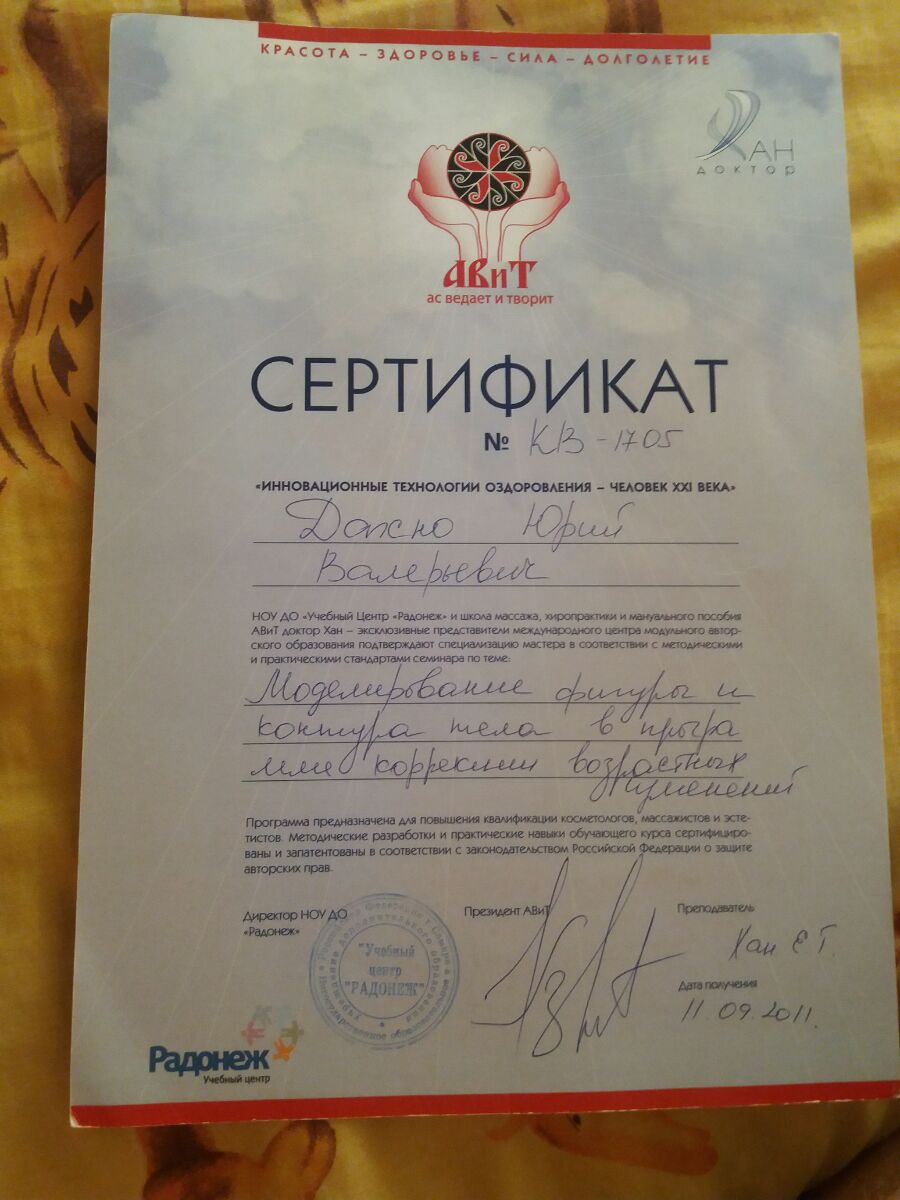 КРАСОТА – ЗДОРОВЬЕ – СИЛА – ДОЛГОЛЕТИЕ
ХАН
ДОКТОР
АВиТ
ас ведает и творит
СЕРТИФИКАТ
№ КВ-1705
«ИННОВАЦИОННЫЕ ТЕХНОЛОГИИ ОЗДОРОВЛЕНИЯ – ЧЕЛОВЕК XXI ВЕКА»
Дахно Юрий
Валерьевич
НОУ ДО «Учебный Центр «Радонеж» и школа массажа, хиропрактики и мануального пособия
АВиТ доктор Хан – эксклюзивные представители международного центра модульного автор-
ского образования подтверждают специализацию мастера в соответствии с методическими
и практическими стандартами семинара по теме:
Моделирование фигуры и
контура тела в програ
мме коррекции возрастных
изменений
Программа предназначена для повышения квалификации косметологов, массажистов и эсте-
тистов. Методические разработки и практические навыки обучающего курса сертифициро-
ваны и запатентованы в соответствии с законодательством Российской Федерации о защите
авторских прав.
Директор НОУ ДО
«Радонеж»
Президент АВиТ
Преподаватель
Хан Е Г.
Дата получения
11.09.2011.
"Учебный
центр
"РАДОНЕЖ"
Радонеж
Учебный центр